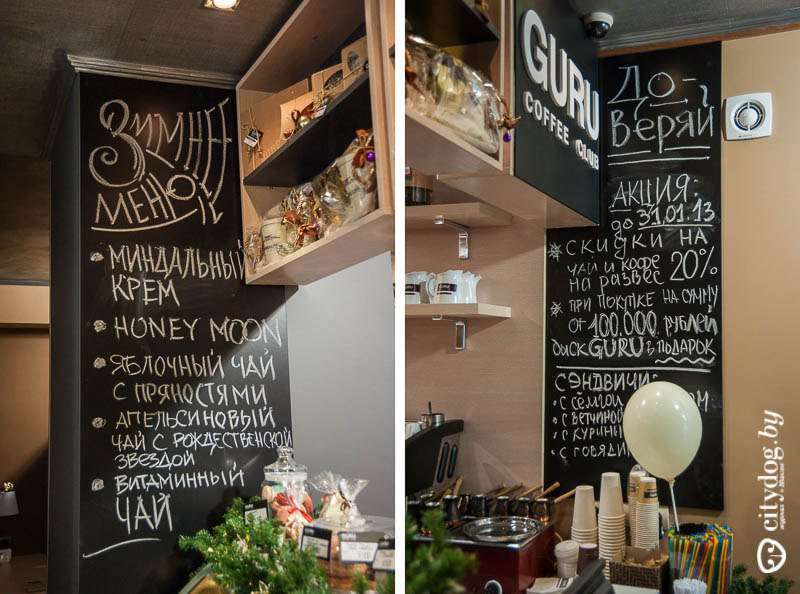 Зимнее
меню
миндальный
крем
Honey Moon
яблочный чай
с пряностями
апельсиновый
чай с рождественской
звездой
витаминный
чай
GURU
COFFEE CLUB
До-
веряй
Акция:
до 31.01.13
* скидки на
чай и кофе
на развес 20%
* при покупке на сумму
от 100.000 рублей
диск GURU в подарок
сэндвичи:
• с сёмгой
• с ветчиной
• с
• с
citydog.by